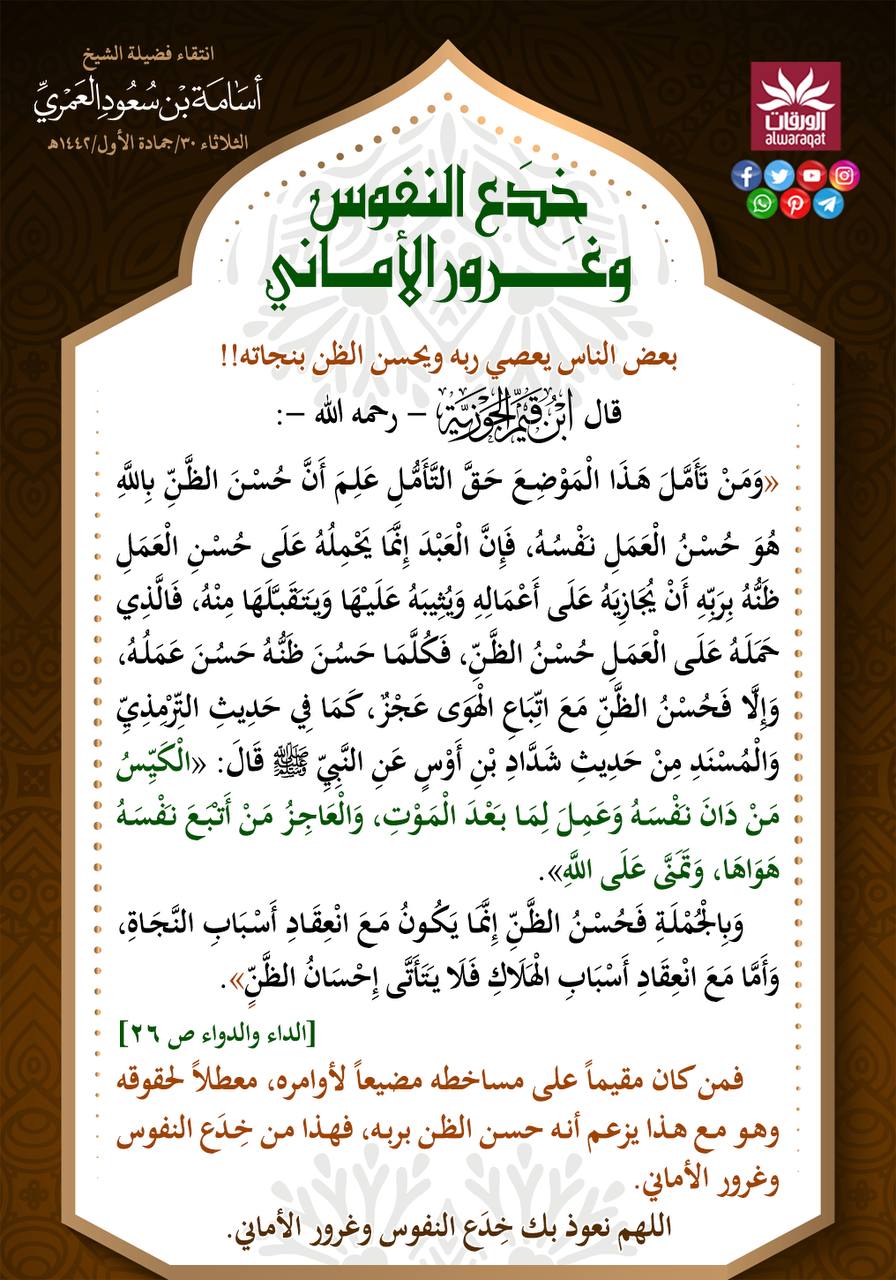 انتقاء فضيلة الشيخ
أسامة بن سعود العمري
الثلاثاء ٣٠/جمادة الأول/١٤٤٢هـ
الورقات
alwaraqat
خِدَع النفوس
وغَــرور الأمــاني
بعض الناس يعصي ربه ويحسن الظن بنجاته!!
قال ابْنُ قَيِّمِ الجَوْزِيَّة – رحمه الله –:
«وَمَنْ تَأَمَّلَ هَذَا الْمَوْضِعَ حَقَّ التَّأَمُّلِ عَلِمَ أَنَّ حُسْنَ الظَّنِّ بِاللَّهِ
هُوَ حُسْنُ الْعَمَلِ نَفْسُهُ، فَإِنَّ الْعَبْدَ إِنَّمَا يَحْمِلُهُ عَلَى حُسْنِ الْعَمَلِ
ظَنُّهُ بِرَبِّهِ أَنْ يُجَازِيَهُ عَلَى أَعْمَالِهِ وَيُثِيبَهُ عَلَيْهَا وَيَتَقَبَّلَهَا مِنْهُ، فَالَّذِي
حَمَلَهُ عَلَى الْعَمَلِ حُسْنُ الظَّنِّ، فَكُلَّمَا حَسُنَ ظَنُّهُ حَسُنَ عَمَلُهُ،
وَإِلَّا فَحُسْنُ الظَّنِّ مَعَ اتِّبَاعِ الْهَوَى عَجْزٌ، كَمَا فِي حَدِيثِ التِّرْمِذِيِّ
وَالْمُسْنَدِ مِنْ حَدِيثِ شَدَّادِ بْنِ أَوْسٍ عَنِ النَّبِيِّ ﷺ قَالَ: «الْكَيِّسُ
مَنْ دَانَ نَفْسَهُ وَعَمِلَ لِمَا بَعْدَ الْمَوْتِ، وَالْعَاجِزُ مَنْ أَتْبَعَ نَفْسَهُ
هَوَاهَا، وَتَمَنَّى عَلَى اللَّهِ».
وَبِالْجُمْلَةِ فَحُسْنُ الظَّنِّ إِنَّمَا يَكُونُ مَعَ انْعِقَادِ أَسْبَابِ النَّجَاةِ،
وَأَمَّا مَعَ انْعِقَادِ أَسْبَابِ الْهَلَاكِ فَلَا يَتَأَتَّى إِحْسَانُ الظَّنِّ».
[الداء والدواء ص ٢٦]
فمن كان مقيماً على مساخطه مضيعاً لأوامره، معطلاً لحقوقه
وهو مع هذا يزعم أنه حسن الظن بربه، فهذا من خِدَع النفوس
وغرور الأماني.
اللهم نعوذ بك خِدَع النفوس وغرور الأماني.